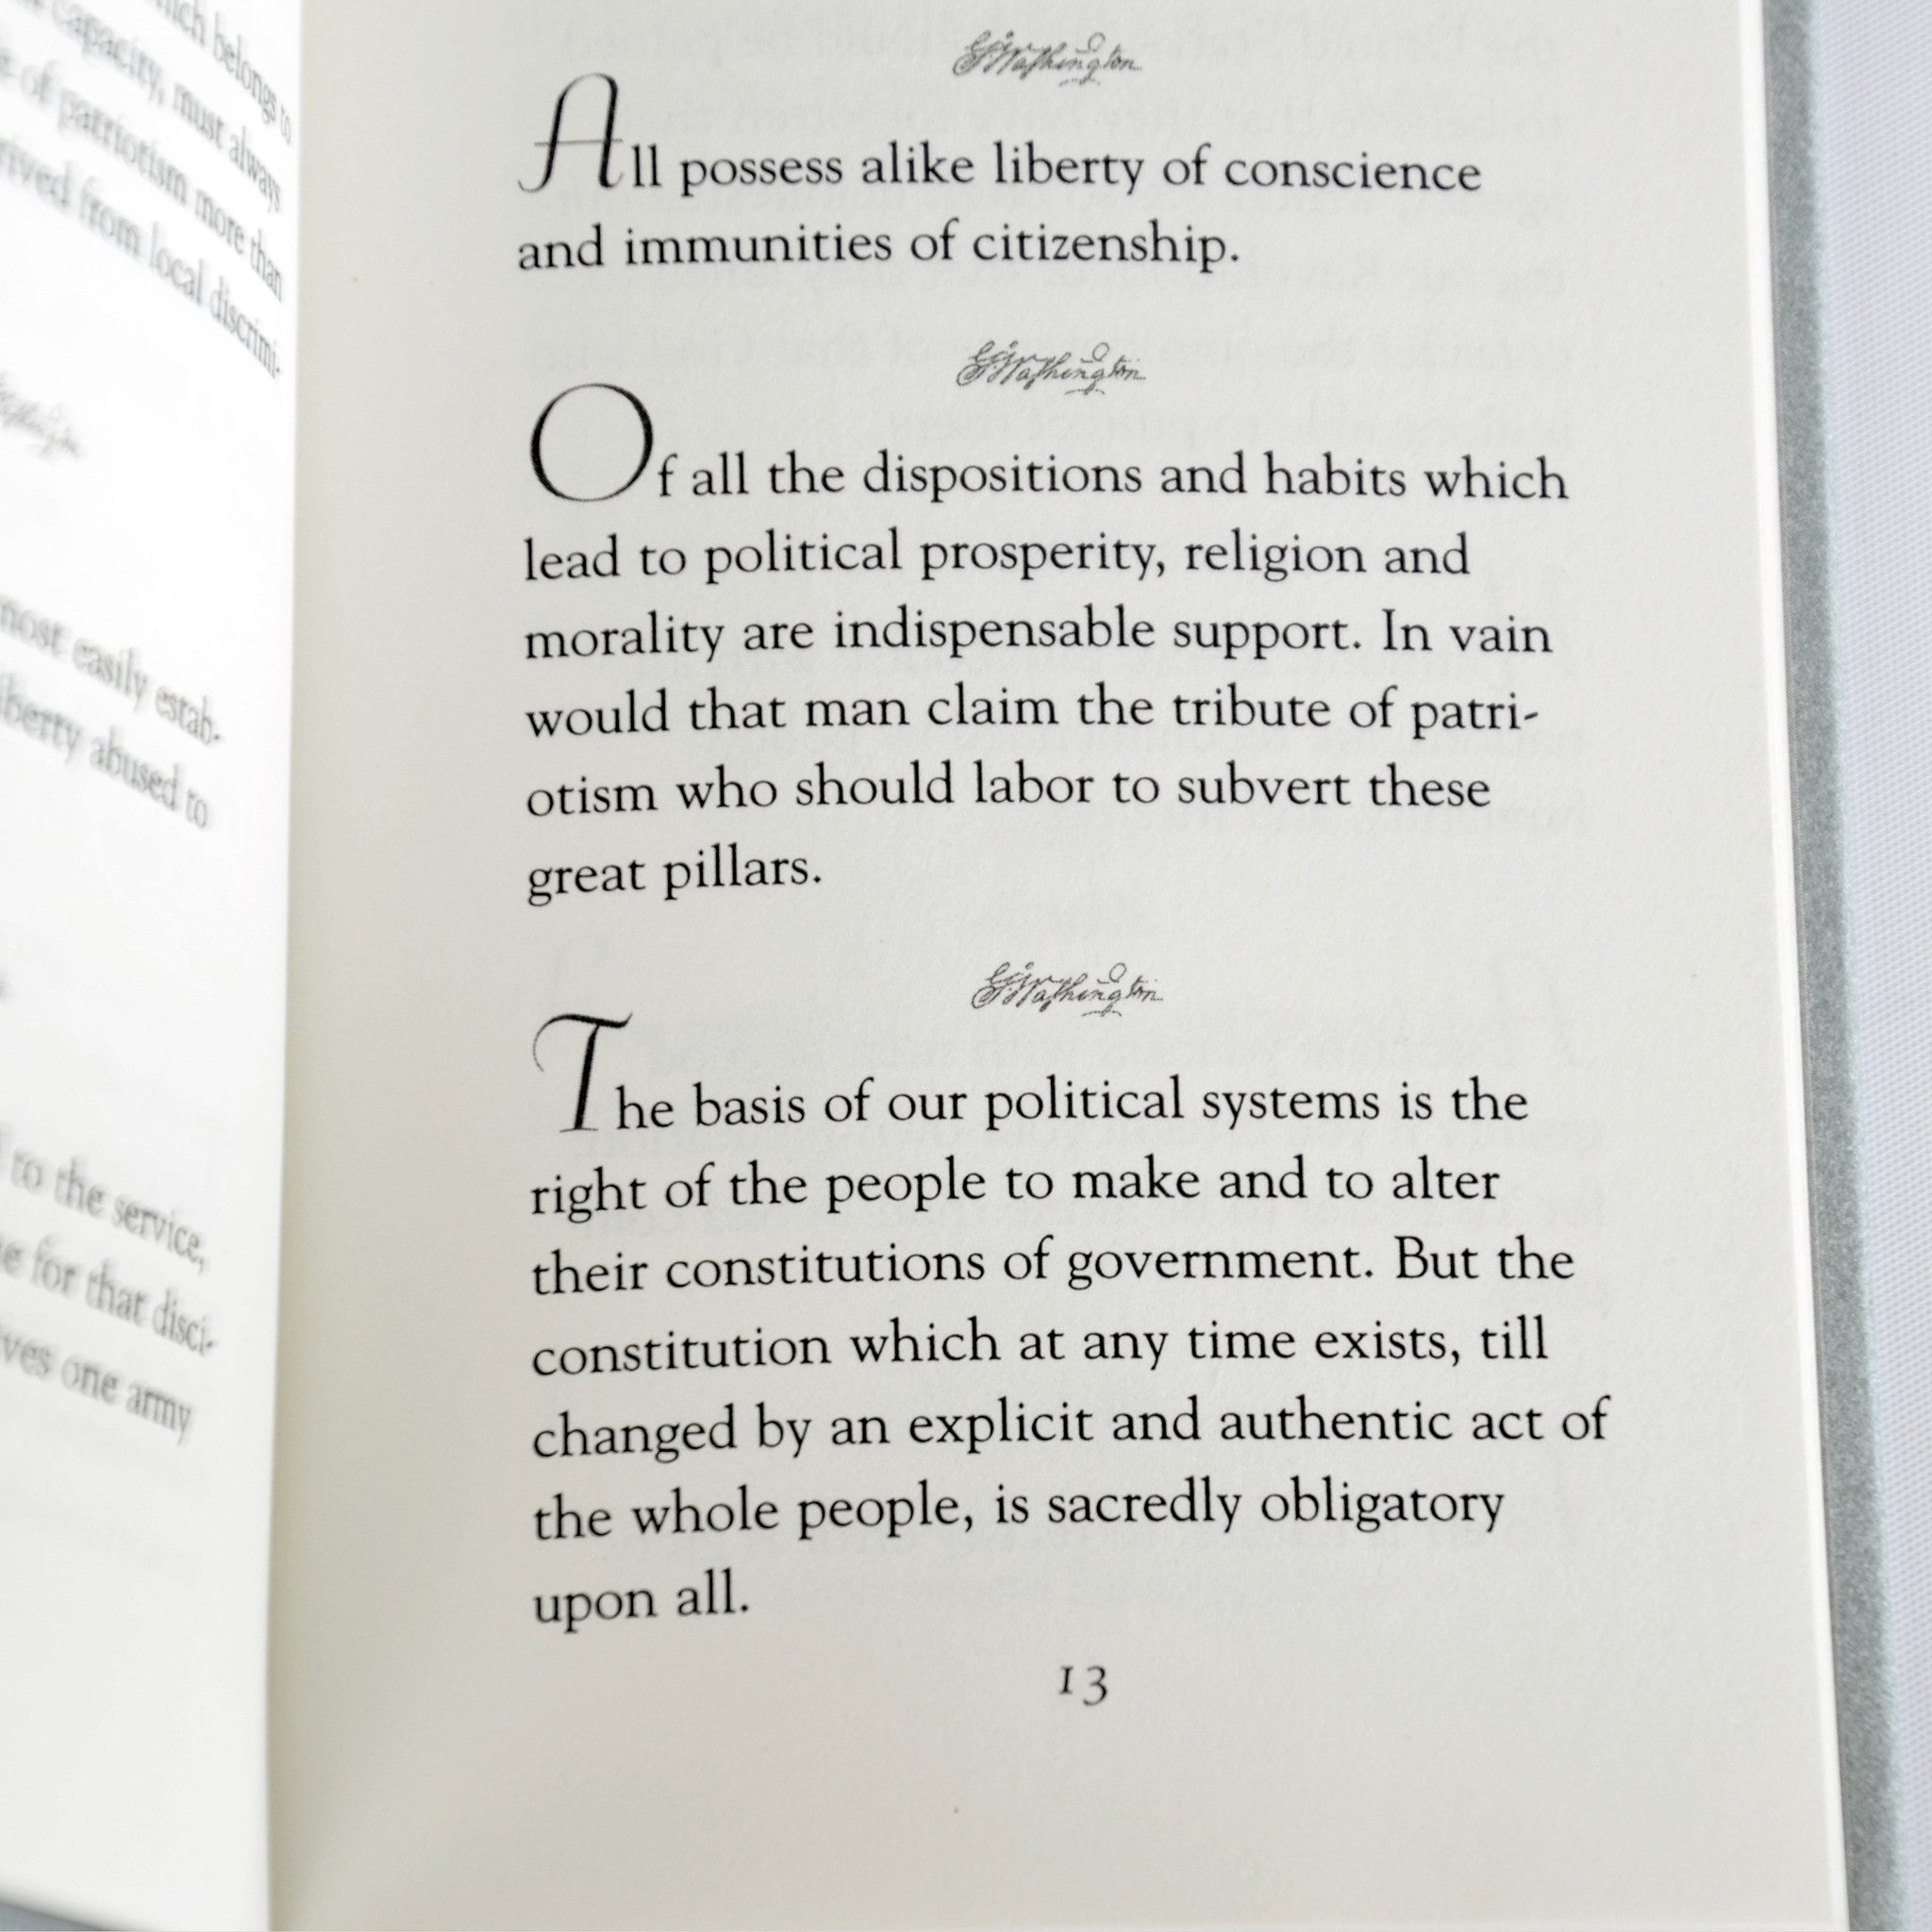 which belongs to
capacity, must always
of patriotism more than
from local discrimi-
most easily estab-
liberty abused to
to the service,
for that disci-
one army
GWashington
All possess alike liberty of conscience
and immunities of citizenship.
GWashington
Of all the dispositions and habits which
lead to political prosperity, religion and
morality are indispensable support. In vain
would that man claim the tribute of patri-
otism who should labor to subvert these
great pillars.
GWashington
The basis of our political systems is the
right of the people to make and to alter
their constitutions of government. But the
constitution which at any time exists, till
changed by an explicit and authentic act of
the whole people, is sacredly obligatory
upon all.
13